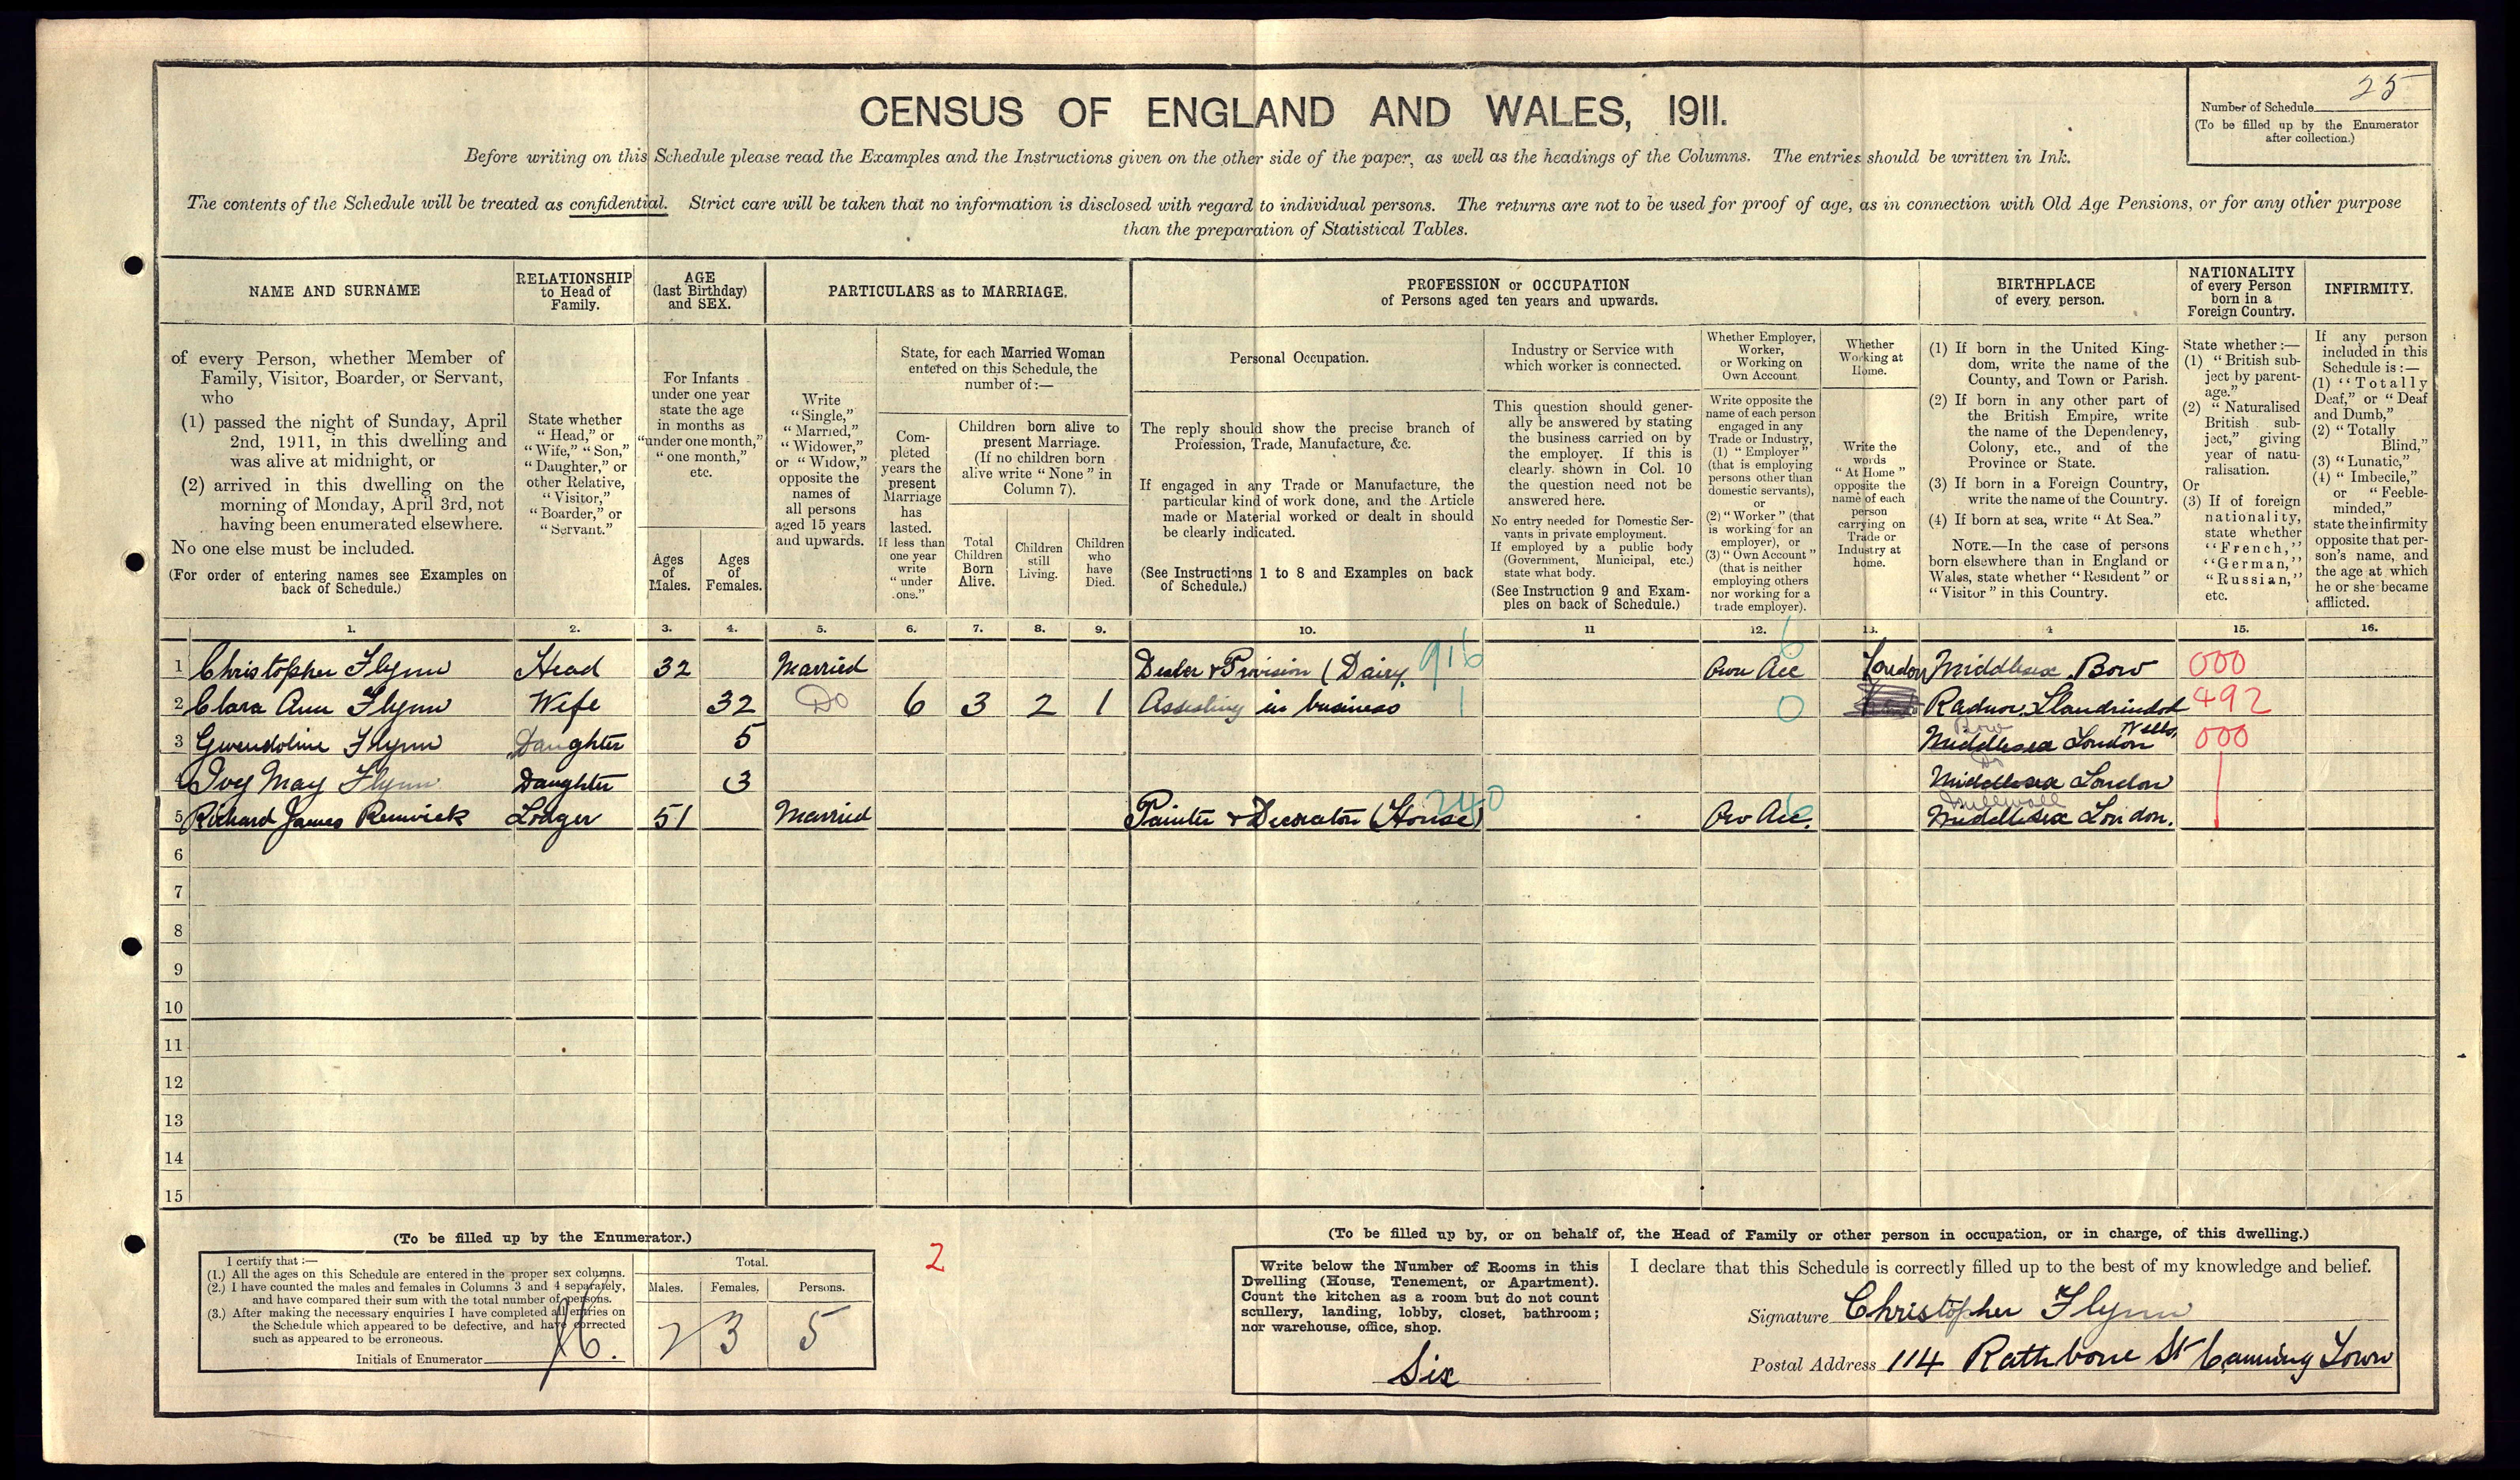 CENSUS OF ENGLAND AND WALES, 1911.
25
Number of Schedule
(To be filled up by the Enumerator
after collection.)
Before writing on this Schedule please read the Examples and the Instructions given on the other side of the paper, as well as the headings of the Columns. The entries should be written in Ink.
The contents of the Schedule will be treated as confidential. Strict care will be taken that no information is disclosed with regard to individual persons. The returns are not to be used for proof of age, as in connection with Old Age Pensions, or for any other purpose
than the preparation of Statistical Tables.
NAME AND SURNAME
of every Person, whether Member of
Family, Visitor, Boarder, or Servant,
who
(1) passed the night of Sunday, April
2nd, 1911, in this dwelling and
was alive at midnight, or
(2) arrived in this dwelling on the
morning of Monday, April 3rd, not
having been enumerated elsewhere.
No one else must be included.
(For order of entering names see Examples on
back of Schedule.)
RELATIONSHIP
to Head of
Family.
State whether
"Head," or
"Wife," "Son,"
"Daughter," or
other Relative,
"Visitor,"
"Boarder," or
"Servant."
AGE
(last Birthday)
and SEX.
For Infants
under one year
state the age
in months as
"under one month,"
"one month,"
etc.
Ages
of
Males.
Ages
of
Females.
PARTICULARS as to MARRIAGE.
Write
"Single,"
"Married,"
"Widower,"
or "Widow,"
opposite the
names of
all persons
aged 15 years
and upwards.
State, for each Married Woman
entered on this Schedule, the
number of:—
Com-
pleted
years the
present
Marriage
has
lasted.
If less than
one year
write
"under
one."
Children born alive to
present Marriage.
(If no children born
alive write "None" in
Column 7).
Total
Children
Born
Alive.
Children
still
Living.
Children
who
have
Died.
PROFESSION or OCCUPATION
of Persons aged ten years and upwards.
Personal Occupation.
The reply should show the precise branch of
Profession, Trade, Manufacture, &c.
If engaged in any Trade or Manufacture, the
particular kind of work done, and the Article
made or Material worked or dealt in should
be clearly indicated.
(See Instructions 1 to 8 and Examples on back
of Schedule.)
Industry or Service with
which worker is connected.
This question should gener-
ally be answered by stating
the business carried on by
the employer. If this is
clearly shown in Col. 10
the question need not be
answered here.
No entry needed for Domestic Ser-
vants in private employment.
If employed by a public body
(Government, Municipal, etc.)
state what body.
(See Instruction 9 and Exam-
ples on back of Schedule.)
Whether Employer,
Worker,
or Working on
Own Account
Write opposite the
name of each person
engaged in any
Trade or Industry,
(1) "Employer"
(that is employing
persons other than
domestic servants),
or
(2) "Worker" (that
is working for an
employer), or
(3) "Own Account"
(that is neither
employing others
nor working for a
trade employer).
Whether
Working at
Home.
Write the
words
"At Home"
opposite the
name of each
person
carrying on
Trade or
Industry at
home.
BIRTHPLACE
of every person.
(1) If born in the United King-
dom, write the name of the
County, and Town or Parish.
(2) If born in any other part of
the British Empire, write
the name of the Dependency,
Colony, etc., and of the
Province or State.
(3) If born in a Foreign Country,
write the name of the Country.
(4) If born at sea, write "At Sea."
NOTE.—In the case of persons
born elsewhere than in England or
Wales, state whether "Resident" or
"Visitor" in this Country.
NATIONALITY
of every Person
born in a
Foreign Country.
State whether:—
(1) "British sub-
ject by parent-
age."
(2) "Naturalised
British sub-
ject," giving
year of natu-
ralisation.
Or
(3) If of foreign
nationality,
state whether
"French,"
"German,"
"Russian,"
etc.
INFIRMITY.
If any person
included in this
Schedule is:—
(1) "Totally
Deaf," or "Deaf
and Dumb,"
(2) "Totally
Blind,"
(3) "Lunatic,"
(4) "Imbecile,"
or "Feeble-
minded,"
state the infirmity
opposite that per-
son's name, and
the age at which
he or she became
afflicted.
1. 2. 3. 4. 5. 6. 7. 8. 9. 10. 11 12. 13. 4 15. 16.
1 Christopher Flynn Head 32 Married Dealer & Provision (Dairy. 916 Own Acc 6 London Middlesex Bow 000
2 Clara Ann Flynn Wife 32 Do 6 3 2 1 Assisting in business 1 0 Radnor. Llandrindod 492
Wells,
Bow
3 Gwendoline Flynn Daughter 5 Middlesex London 000
Do
4 Ivy May Flynn Daughter 3 Middlesex London
Millwall
5 Richard James Renwick Lodger 51 Married Painter & Decorator (House) 240 Ow Acc. 6 Middlesex London.
6
7
8
9
10
11
12
13
14
15
(To be filled up by the Enumerator.)
I certify that:—
(1.) All the ages on this Schedule are entered in the proper sex columns.
(2.) I have counted the males and females in Columns 3 and 4 separately,
and have compared their sum with the total number of persons.
(3.) After making the necessary enquiries I have completed all entries on
the Schedule which appeared to be defective, and have corrected
such as appeared to be erroneous.
Initials of Enumerator
Total.
Males. Females. Persons.
2 3 5
2
(To be filled up by, or on behalf of, the Head of Family or other person in occupation, or in charge, of this dwelling.)
Write below the Number of Rooms in this
Dwelling (House, Tenement, or Apartment).
Count the kitchen as a room but do not count
scullery, landing, lobby, closet, bathroom;
nor warehouse, office, shop.
Six
I declare that this Schedule is correctly filled up to the best of my knowledge and belief.
Signature Christopher Flynn
Postal Address 114 Rathbone St Canning Town